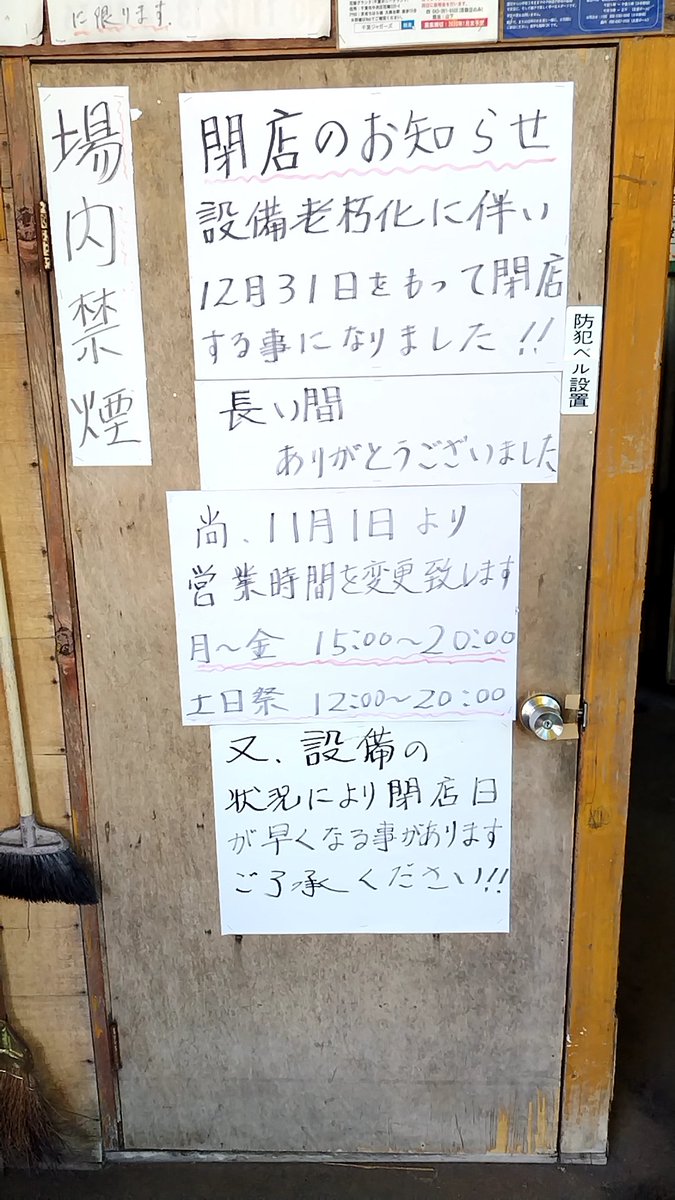 に限ります。
場内禁煙
閉店のお知らせ
設備老朽化に伴い
12月31日をもって閉店
する事になりました!!
長い間
ありがとうございました
尚、11月1日より
営業時間を変更致します
月〜金 15:00〜20:00
土日祭 12:00〜20:00
又、設備の
状況により閉店日
が早くなる事があります
ご了承ください!!
防犯ベル設置